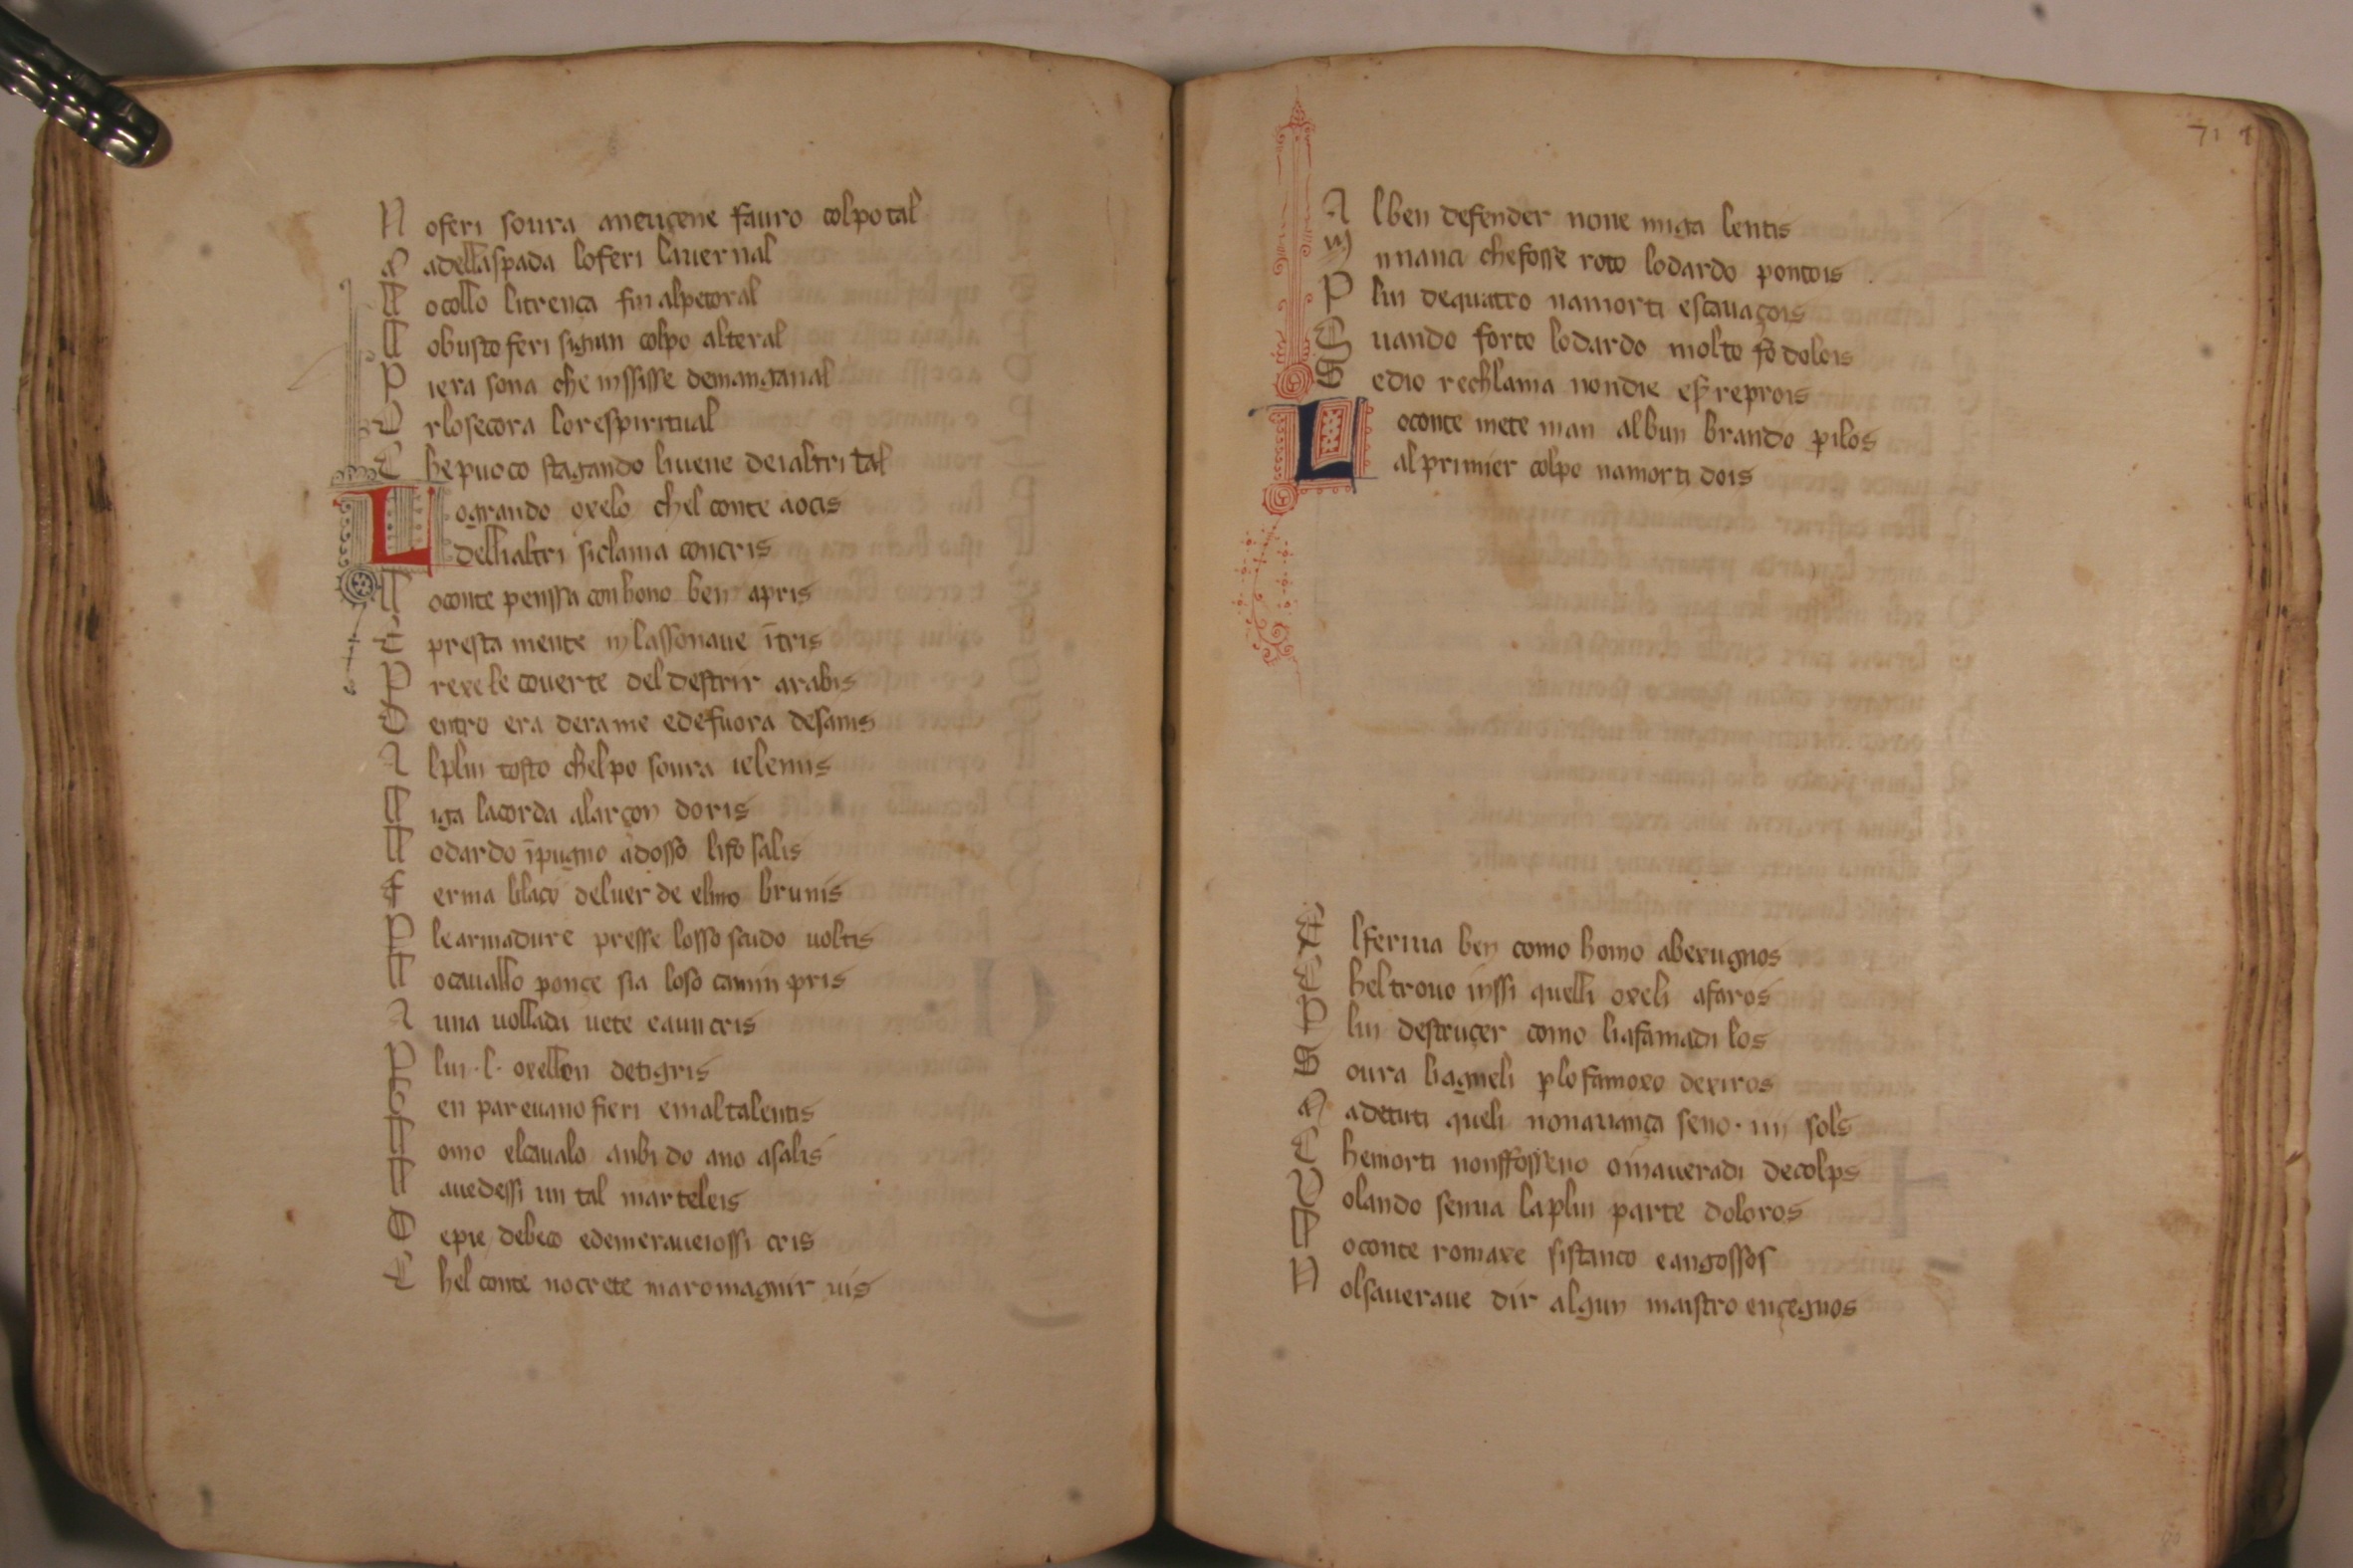 N oferi soura aneuçene fauro colpo tal
a adella spada loferi lauernal
L ocollo litrença fin alpetoral
L obusto feri signun colpo alteral
P iera sona che inssisse demanganal
O rlosecora lorespiritual
C hepuoco stagando liuene deialtri tal
L ogrando oxelo chel conte aocis
dellialtri siclama concris
L oconte penssa conhono ben apris
E presta mente in lassonaue ītris
P rexe le couerte del destrir arabis
D entro era derame edefuora desamis
A lplui tosto chelpo soura ielemis
L iga lacorda alarçon doris
L odardo īpugno adosso lifo salis
F erma lilaço deluer de elmo brunis
P learmadure presse losso scudo uoltis
L ocauallo ponçe sia loso camin pris
A una uollada uete eauncris
P lui ·l· oxellon detigris
B en pareuano fieri emaltalentis
L omo elcaualo anbi do ano asalis
L auedessi un tal marteleis
D epie debeco edemeraueiossi cris
C hel conte nocrete maromagnir uis
71
A lben defender none miga lentis
in nnanci chefosse roto lodardo pontois
P lui dequatro namorti escauaçois
Q uando forte lodardo molto fo dolois
S edio rechlama nondie eser reprois
L oconte mete man albun brando pilos
al primier colpo namorti dois
E lferiua ben como homo abexugnos
C heltrouo inssi quelli oxeli afaros
P lui destruçer como liafamadi los
S oura liagneli plo famoxo dexiros
A adetuti queli nonauança seno · iiii sols
C hemorti nonffosseno oinaueradi decolps
V olando senua laplui parte doloros
L oconte romaxe sistanco eangossos
N olsaueraue dir algun maistro ençegnos